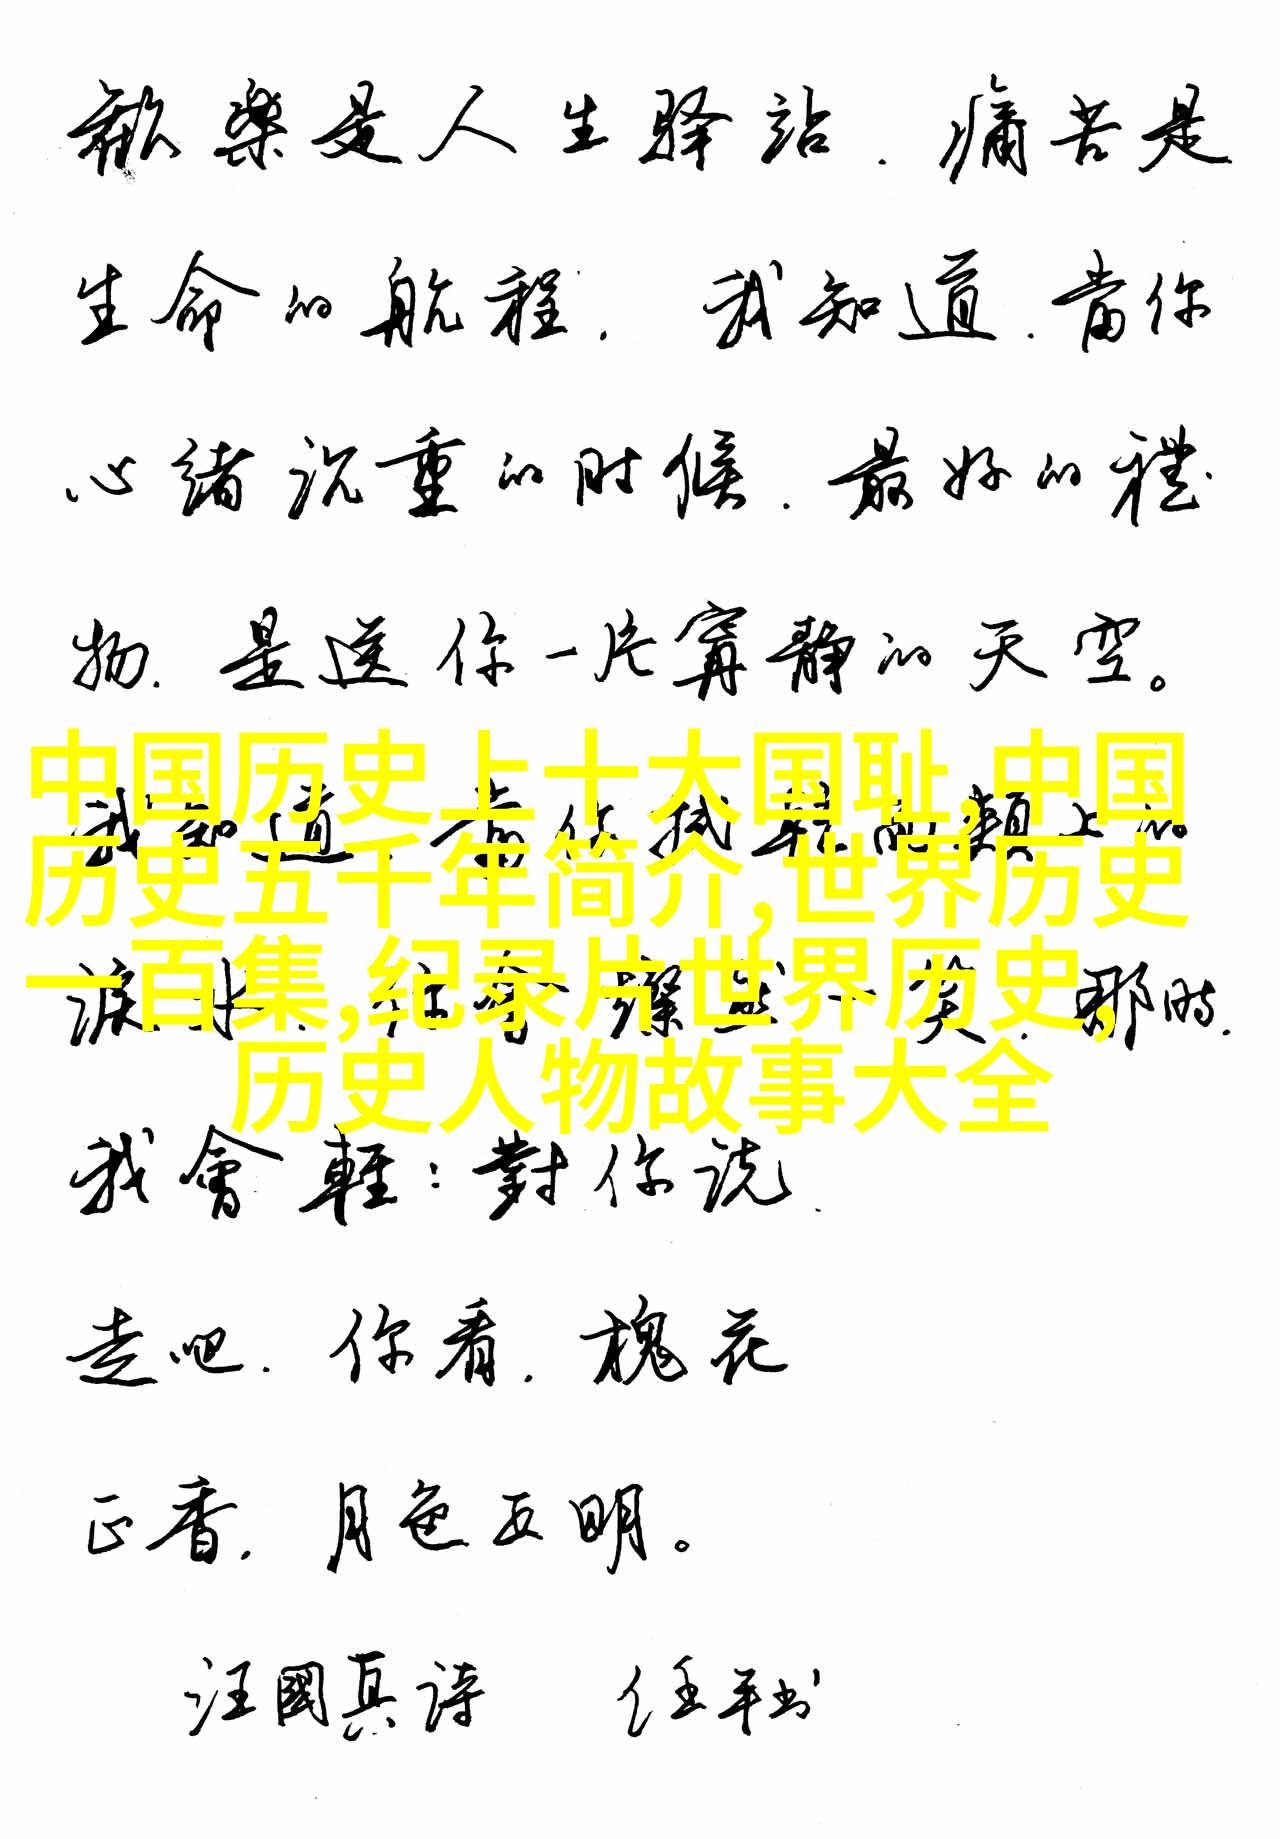 歡樂是人生驿站.痛苦是
生命的航程.我知道.當你
心緒沉重的时候.最好的禮
物.是送你一片寧静的天空。
中国历史上十大国耻,中国
我知道.當你拭乾面頰上的
历史五千年简介,世界历史
一百集,纪录片世界历史,
淚水 一笑.那时.
历史人物故事大全
我會輕:對你说.
走吧.你看.槐花
正香.月色正明。
汪國真诗 任平书